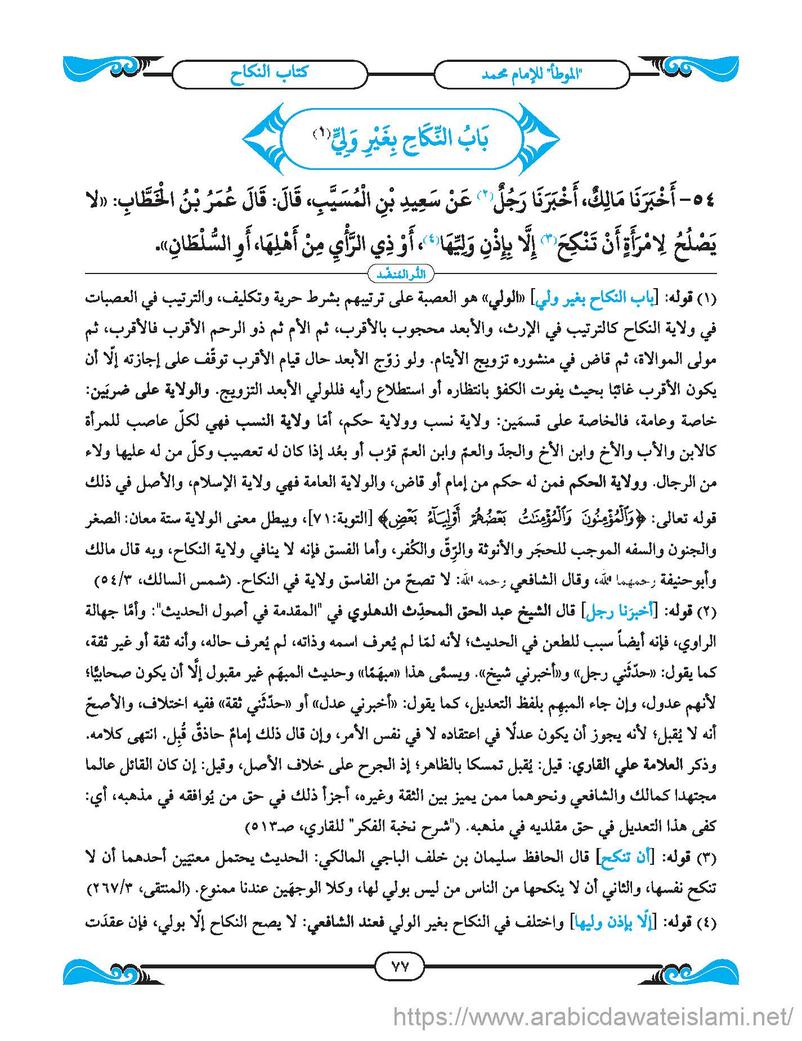 "الموطأ" للإمام محمد
كتاب النكاح
بَابُ النِّكَاحِ بِغَيْرِ وَلِيٍّ(١)
٥٤- أَخْبَرَنَا مَالِكٌ، أَخْبَرَنَا رَجُلٌ(٢) عَنْ سَعِيدِ بْنِ الْمُسَيَّبِ، قَالَ: قَالَ عُمَرُ بْنُ الْخَطَّابِ: «لا
يَصْلُحُ لِامْرَأَةٍ أَنْ تَنْكِحَ(٣) إِلَّا بِإِذْنِ وَلِيِّهَا(٤)، أَوْ ذِي الرَّأْيِ مِنْ أَهْلِهَا، أَوِ السُّلْطَانِ».
الدُّر المُنضَّد
(١) قوله: [باب النكاح بغير ولي] «الولي» هو العصبة على ترتيبهم بشرط حرية وتكليف، والترتيب في العصبات
في ولاية النكاح كالترتيب في الإرث، والأبعد محجوب بالأقرب، ثم الأم ثم ذو الرحم الأقرب فالأقرب، ثم
مولى الموالاة، ثم قاض في منشوره تزويج الأيتام. ولو زوّج الأبعد حال قيام الأقرب توقّف على إجازته إلّا أن
يكون الأقرب غائبًا بحيث يفوت الكفؤ بانتظاره أو استطلاع رأيه فللولي الأبعد التزويج. والولاية على ضربَين:
خاصة وعامة، فالخاصة على قسمَين: ولاية نسب وولاية حكم، أمّا ولاية النسب فهي لكلّ عاصب للمرأة
كالابن والأب والأخ وابن الأخ والجدّ والعمّ وابن العمّ قرُب أو بعُد إذا كان له تعصيب وكلّ من له عليها ولاء
من الرجال. وولاية الحكم فمن له حكم من إمام أو قاض، والولاية العامة فهي ولاية الإسلام، والأصل في ذلك
قوله تعالى: ﴿وَٱلْمُؤْمِنُونَ وَٱلْمُؤْمِنَٰتُ بَعْضُهُمْ أَوْلِيَآءُ بَعْضٍ﴾ [التوبة:٧١]، ويبطل معنى الولاية ستة معان: الصغر
والجنون والسفه الموجب للحجَر والأنوثة والرِّقّ والكُفر، وأما الفسق فإنه لا ينافي ولاية النكاح، وبه قال مالك
وأبوحنيفة رحمهما الله، وقال الشافعي رحمه الله: لا تصحّ من الفاسق ولاية في النكاح. (شمس السالك، ٥٤/٣)
(٢) قوله: [أخبرَنا رجل] قال الشيخ عبد الحق المحدِّث الدهلوي في "المقدمة في أصول الحديث": وأمَّا جهالة
الراوي، فإنه أيضاً سبب للطعن في الحديث؛ لأنه لمّا لم يُعرف اسمه وذاته، لم يُعرف حاله، وأنه ثقة أو غير ثقة،
كما يقول: «حدّثَني رجل» و«أخبرني شيخ». ويسمَّى هذا «مبهَمًا» وحديث المبهَم غير مقبول إلَّا أن يكون صحابيًّا؛
لأنهم عدول، وإن جاء المبهم بلفظ التعديل، كما يقول: «أخبرني عدل» أو «حدّثَني ثقة» ففيه اختلاف، والأصحّ
أنه لا يُقبل؛ لأنه يجوز أن يكون عدلًا في اعتقاده لا في نفس الأمر، وإن قال ذلك إمامٌ حاذقٌ قُبِل. انتهى كلامه.
وذكر العلامة علي القاري: قيل: يُقبل تمسكا بالظاهر؛ إذ الجرح على خلاف الأصل، وقيل: إن كان القائل عالما
مجتهدا كمالك والشافعي ونحوهما ممن يميز بين الثقة وغيره، أجزأ ذلك في حق من يُوافقه في مذهبه، أي:
كفى هذا التعديل في حق مقلديه في مذهبه. ("شرح نخبة الفكر" للقاري، صـ٥١٣)
(٣) قوله: [أن تنكح] قال الحافظ سليمان بن خلف الباجي المالكي: الحديث يحتمل معنيَين أحدهما أن لا
تنكح نفسها، والثاني أن لا ينكحها من الناس من ليس بولي لها، وكلا الوجهَين عندنا ممنوع. (المنتقى، ٢٦٧/٣)
(٤) قوله: [إلّا بإذن وليها] واختلف في النكاح بغير الولي فعند الشافعي: لا يصح النكاح إلّا بولي، فإن عقدَت
٧٧
https://www.arabicdawateislami.net/